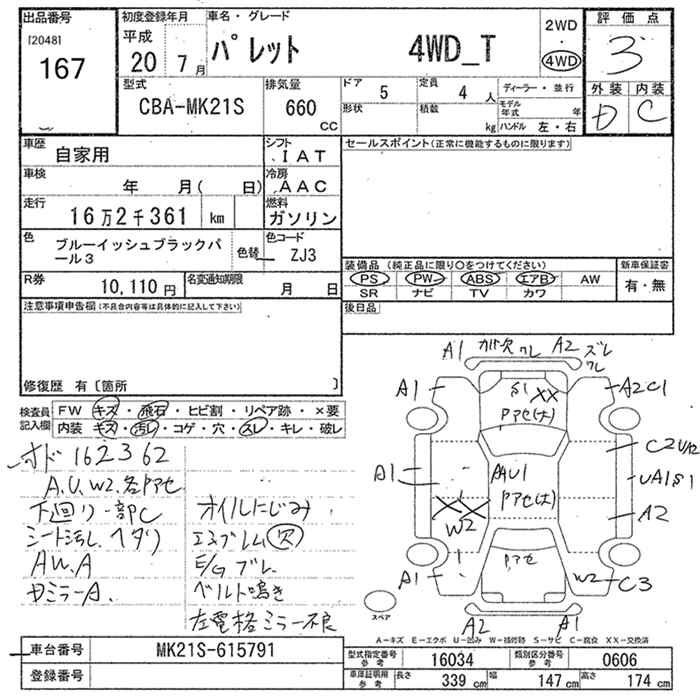 出品番号 初度登録年月 車名・グレード 2WD・4WD 評価点
[2048] 平成 20年 7月 パレット 4WD_T 3
167
型式 排気量 ドア 5 定員 4人 ディーラー・並行 外装 内装
CBA-MK21S 660 CC 形状 積数 kg モデル年式 年 D C
ハンドル 左・右
車歴 自家用 シフト IAT セールスポイント(正常に機能するものに限ります)
車検 年 月( 日) 冷房 AAC
走行 16万2千361 km 燃料 ガソリン
色 ブルーイッシュブラックパール3 色替 色コード ZJ3
装備品 (純正品に限り○をつけてください) 新車保証書
R券 10,110円 名変通知期限 月 日 PS PW ABS エアB AW 有・無
SR ナビ TV カワ
注意事項申告欄(不具合内容等は具体的に記入して下さい) 後日品
修復歴 有 〔箇所 〕
検査員記入欄 FW キズ・飛石・ヒビ割・リペア跡・×要
内装 キズ・汚れ・コゲ・穴・スレ・キレ・破レ
オド 162362
A.U.W2.各Pアセ
下回リ一部C オイルにじみ
シート汚し.ヘタリ エンブレム欠
AW.A E/Gブレ
DミラーA. ベルト鳴き
左電格ミラー不良
A1 ガバ欠ワレ A2 ズレワレ
A1 S1 XX A2C1
Pアセ(大)
C2
A1 AU1 UA1S1
Pアセ(大)
XX W2 A2
Pアセ
A1 W2 C3
スペア A2 A1
A-キズ E-エクボ U-凹み W-補修跡 S-サビ C-腐食 XX-交換済
車台番号 MK21S-615791
型式指定番号 参考 16034 類別区分番号 参考 0606
登録番号
車庫証明用 参考 長さ 339 cm 幅 147 cm 高さ 174 cm